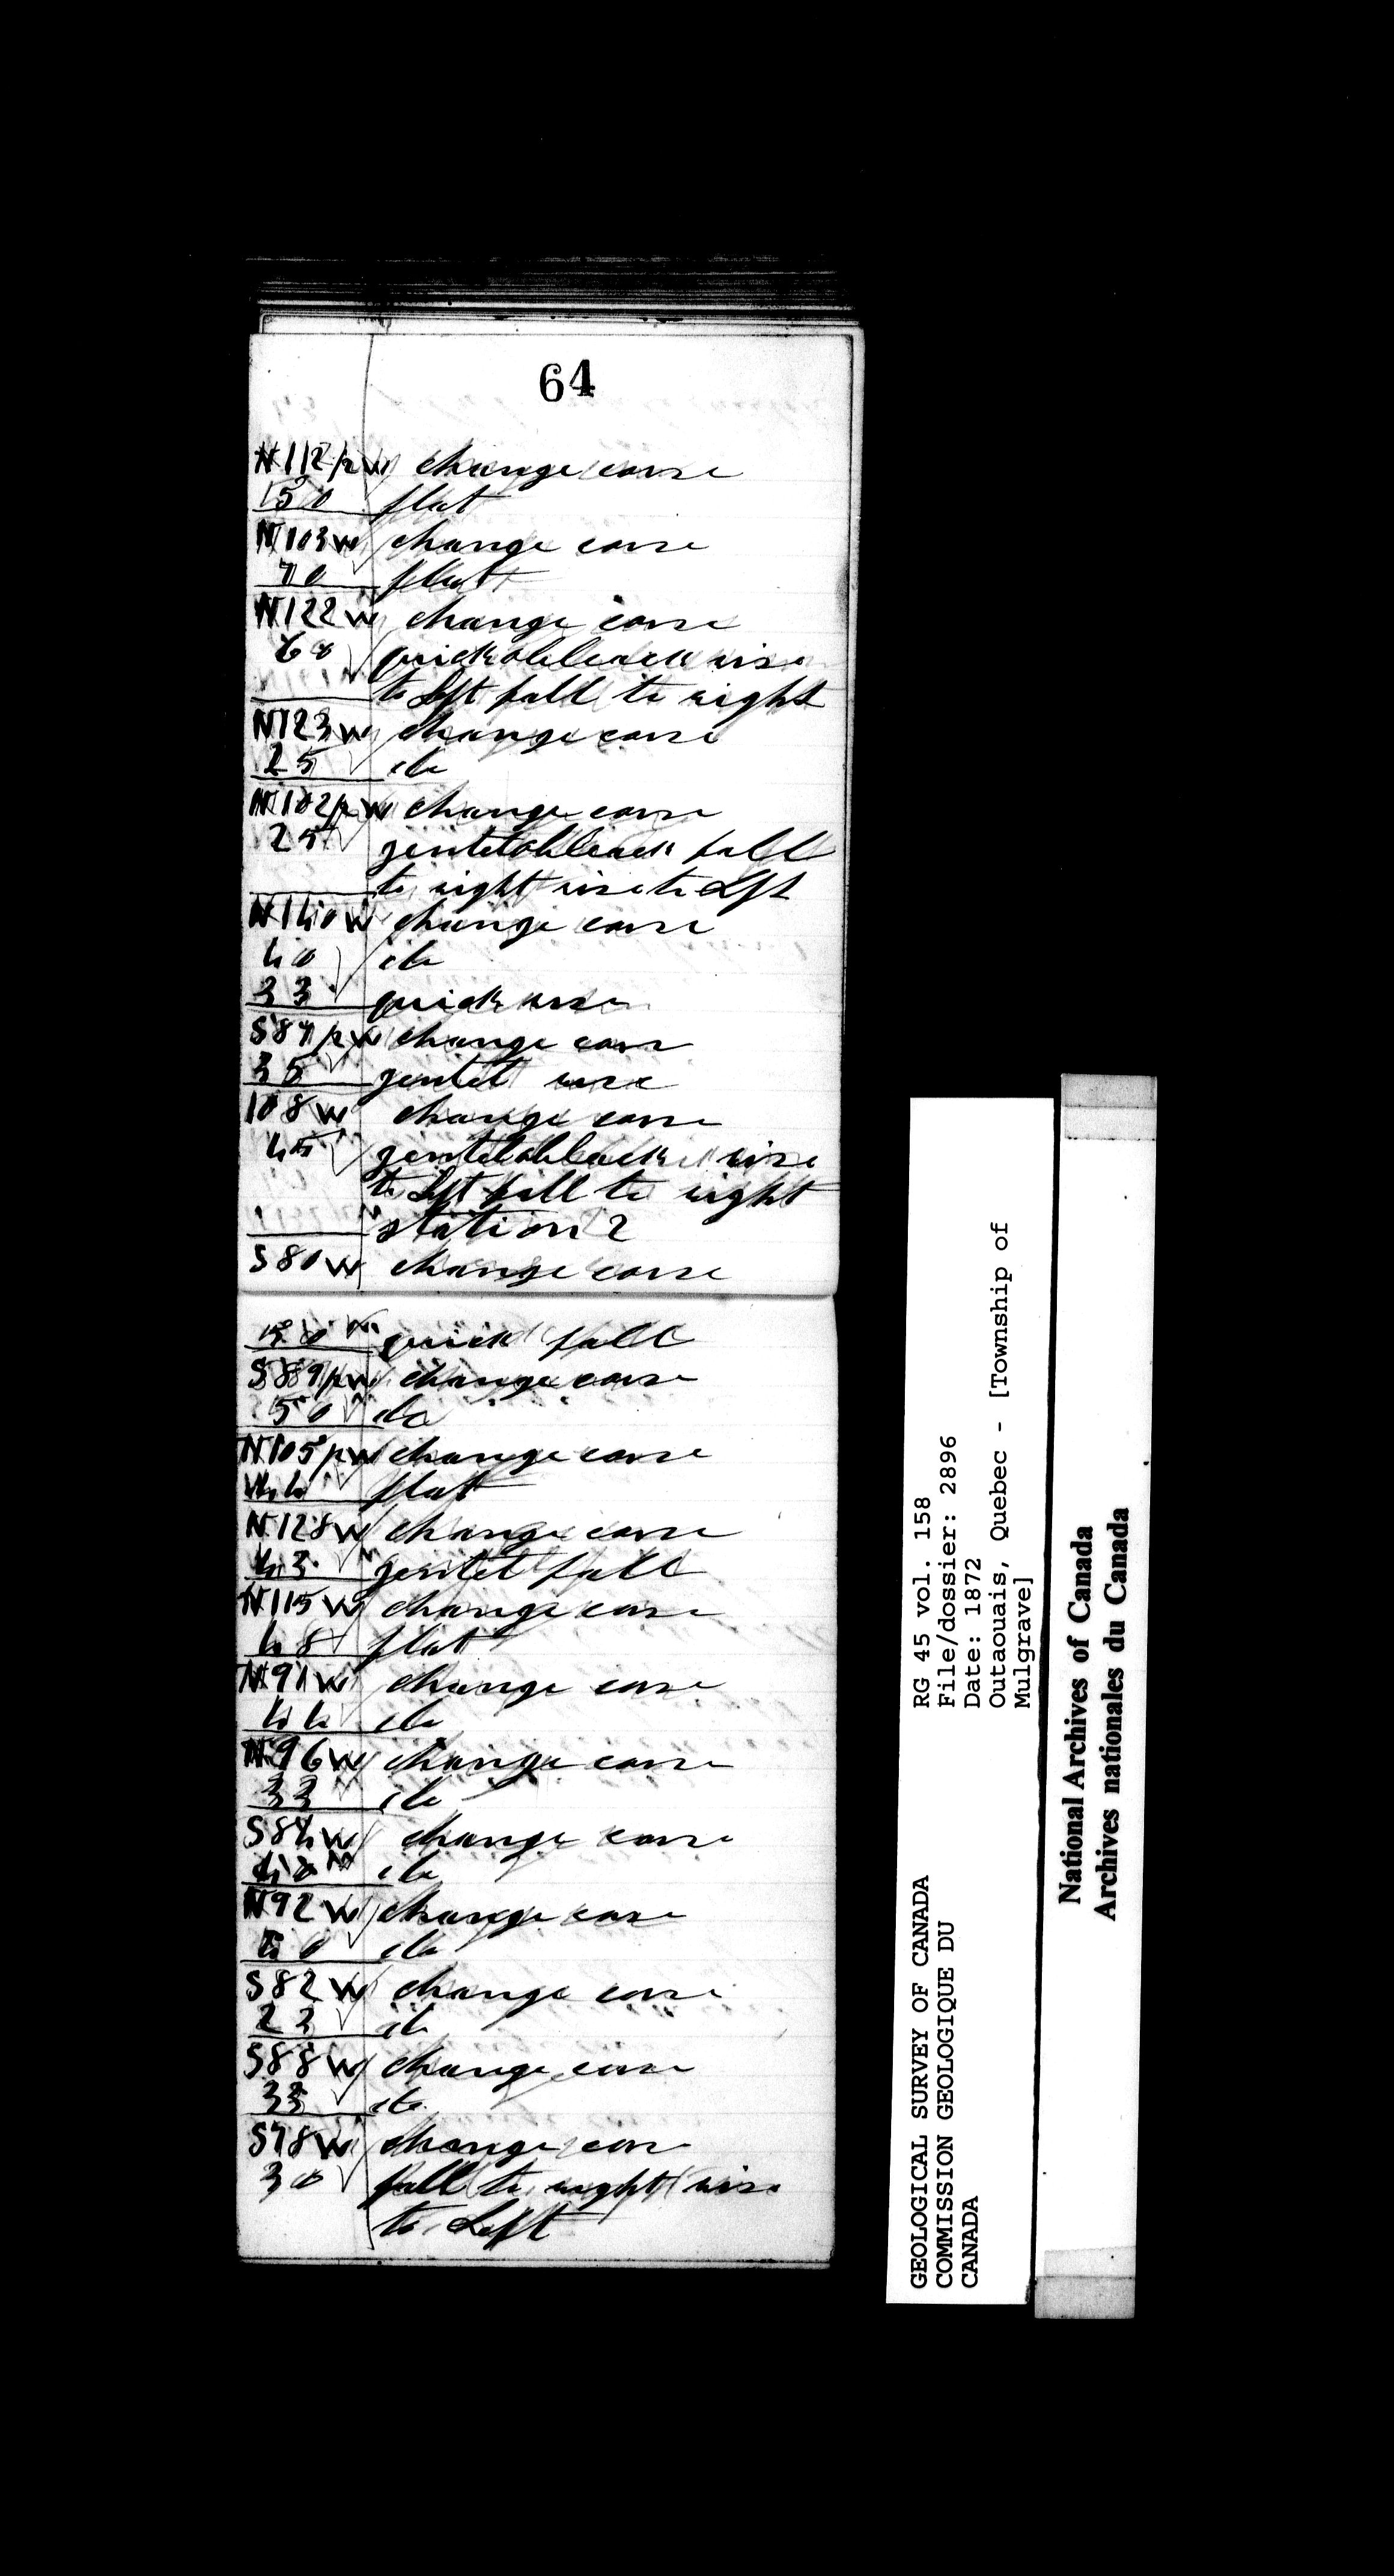 64
N 112 p W change corse
150 flat
N 103 W change corse
70 flat
N 122 W change corse
68 quick obleack rise
to Left fall to right
N 123 W change corse
25 do
N 102 p W change corse
25 gentel obleack fall
to right rise to Left
N 140 W change corse
40 do
33 quick rise
S 87 p W change corse
35 gentel rise
108 W change corse
45 gentel obleack rise
to Left fall to right
station 2
S 80 W change corse
50 quick fall
S 89 p W change corse
50 do
N 105 p W change corse
44 flat
N 128 W change corse
43 gentel fall
N 115 W change corse
48 flat
N 91 W change corse
44 do
N 96 W change corse
33 do
S 84 W change corse
40 do
N 92 W change corse
do
S 82 W change corse
22 do
S 88 W change corse
33 do
S 78 W change corse
30 fall to right rise
to Left
GEOLOGICAL SURVEY OF CANADA
COMMISSION GEOLOGIQUE DU
CANADA
RG 45 vol. 158
File/dossier: 2896
Date: 1872
Outaouais, Quebec - [Township of
Mulgrave]
National Archives of Canada
Archives nationales du Canada